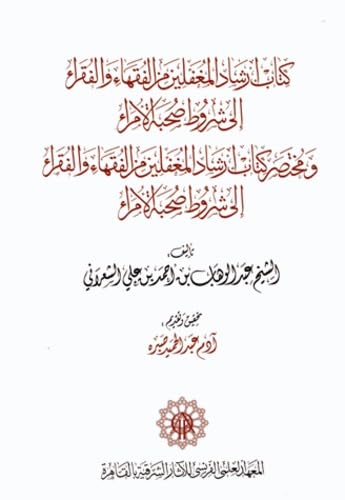 كتاب ارشاد المغفلين من الفقهاء والفقراء
إلى شروط صحبة الأمراء
ومختصر كتاب ارشاد المغفلين من الفقهاء والفقراء
إلى شروط صحبة الأمراء
تأليف
الشيخ عبد الوهاب بن احمد بن علي الشعراني
تحقيق وتقديم
آدم عبد الحميد صبره
المعهد العلمي الفرنسي للآثار الشرقية بالقاهرة